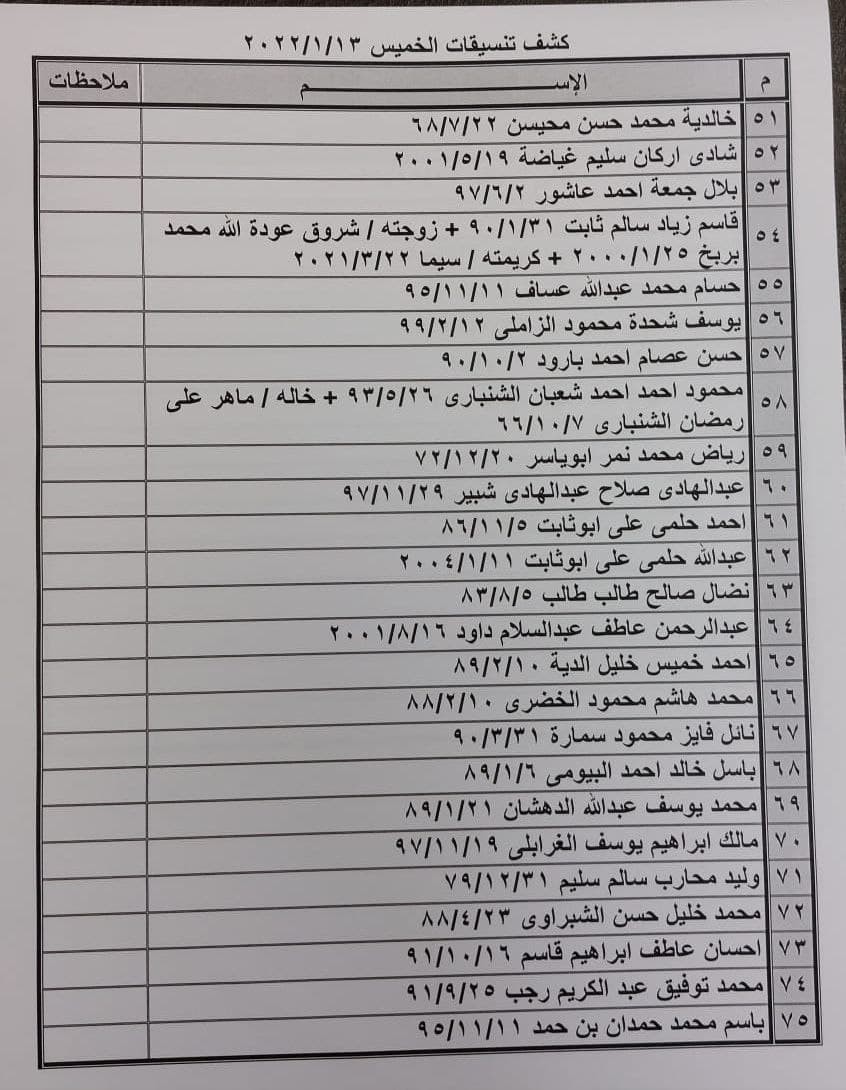 كشف تنسيقات الخميس ٢٠٢٢/١/١٣
م الإســــــــم ملاحظات
٥١ خالدية محمد حسن محيسن ٦٨/٧/٢٢
٥٢ شادى اركان سليم غياضة ٢٠٠١/٥/١٩
٥٣ بلال جمعة احمد عاشور ٩٧/٦/٢
٥٤ قاسم زياد سالم ثابت ٩٠/١/٣١ + زوجته / شروق عودة الله محمد
بربخ ٢٠٠٠/١/٢٥ + كريمته / سيما ٢٠٢١/٣/٢٢
٥٥ حسام محمد عبدالله عساف ٩٥/١١/١١
٥٦ يوسف شحدة محمود الزاملى ٩٩/٢/١٢
٥٧ حسن عصام احمد بارود ٩٠/١٠/٢
٥٨ محمود احمد احمد شعبان الشنبارى ٩٣/٥/٢٦ + خاله / ماهر على
رمضان الشنبارى ٦٦/١٠/٧
٥٩ رياض محمد نمر ابوياسر ٧٢/١٢/٢٠
٦٠ عبدالهادى صلاح عبدالهادى شبير ٩٧/١١/٢٩
٦١ احمد حلمى على ابوثابت ٨٦/١١/٥
٦٢ عبدالله حلمى على ابوثابت ٢٠٠٤/١/١١
٦٣ نضال صالح طالب طالب ٨٣/٨/٥
٦٤ عبدالرحمن عاطف عبدالسلام داود ٢٠٠١/٨/١٦
٦٥ احمد خميس خليل الدية ٨٩/٢/١٠
٦٦ محمد هاشم محمود الخضرى ٨٨/٢/١٠
٦٧ نائل فايز محمود سمارة ٩٠/٣/٣١
٦٨ باسل خالد احمد البيومى ٨٩/١/٦
٦٩ محمد يوسف عبدالله الدهشان ٨٩/١/٢١
٧٠ مالك ابراهيم يوسف الغرابلى ٩٧/١١/١٩
٧١ وليد محارب سالم سليم ٧٩/١٢/٣١
٧٢ محمد خليل حسن الشبراوى ٨٨/٤/٢٣
٧٣ احسان عاطف ابراهيم قاسم ٩١/١٠/١٦
٧٤ محمد توفيق عبد الكريم رجب ٩١/٩/٢٥
٧٥ باسم محمد حمدان بن حمد ٩٥/١١/١١